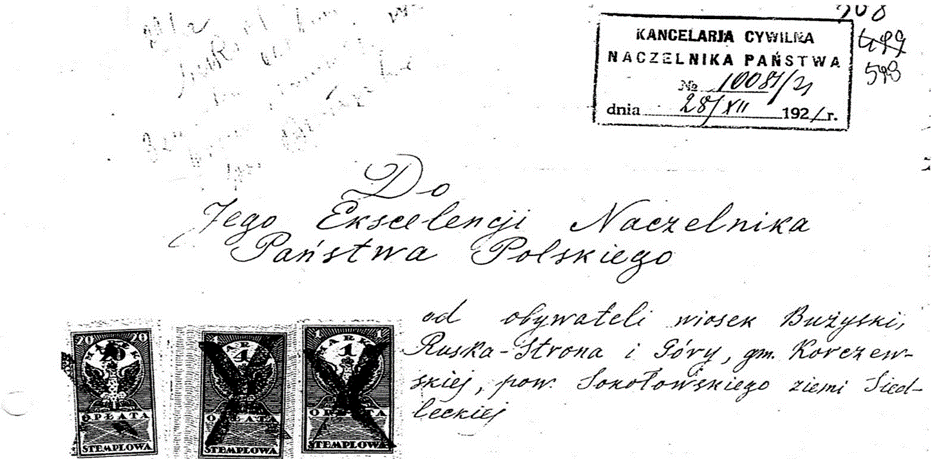 508
499
598
KANCELARJA CYWILNA
NACZELNIKA PAŃSTWA
№ 10087/21
dnia 28/XII 1921 r.
Do
Jego Ekscelencji Naczelnika
Państwa Polskiego
od obywateli wiosek Bużyski,
Ruska-Strona i Góry, gm. Korczew-
skiej, pow. Sokołowskiego ziemi Sied-
leckiej
20 20
MAREK
OPŁATA
STEMPLOWA
1 1
MARKA
1
OPŁATA
STEMPLOWA
1 1
MARKA
1
OPŁATA
STEMPLOWA